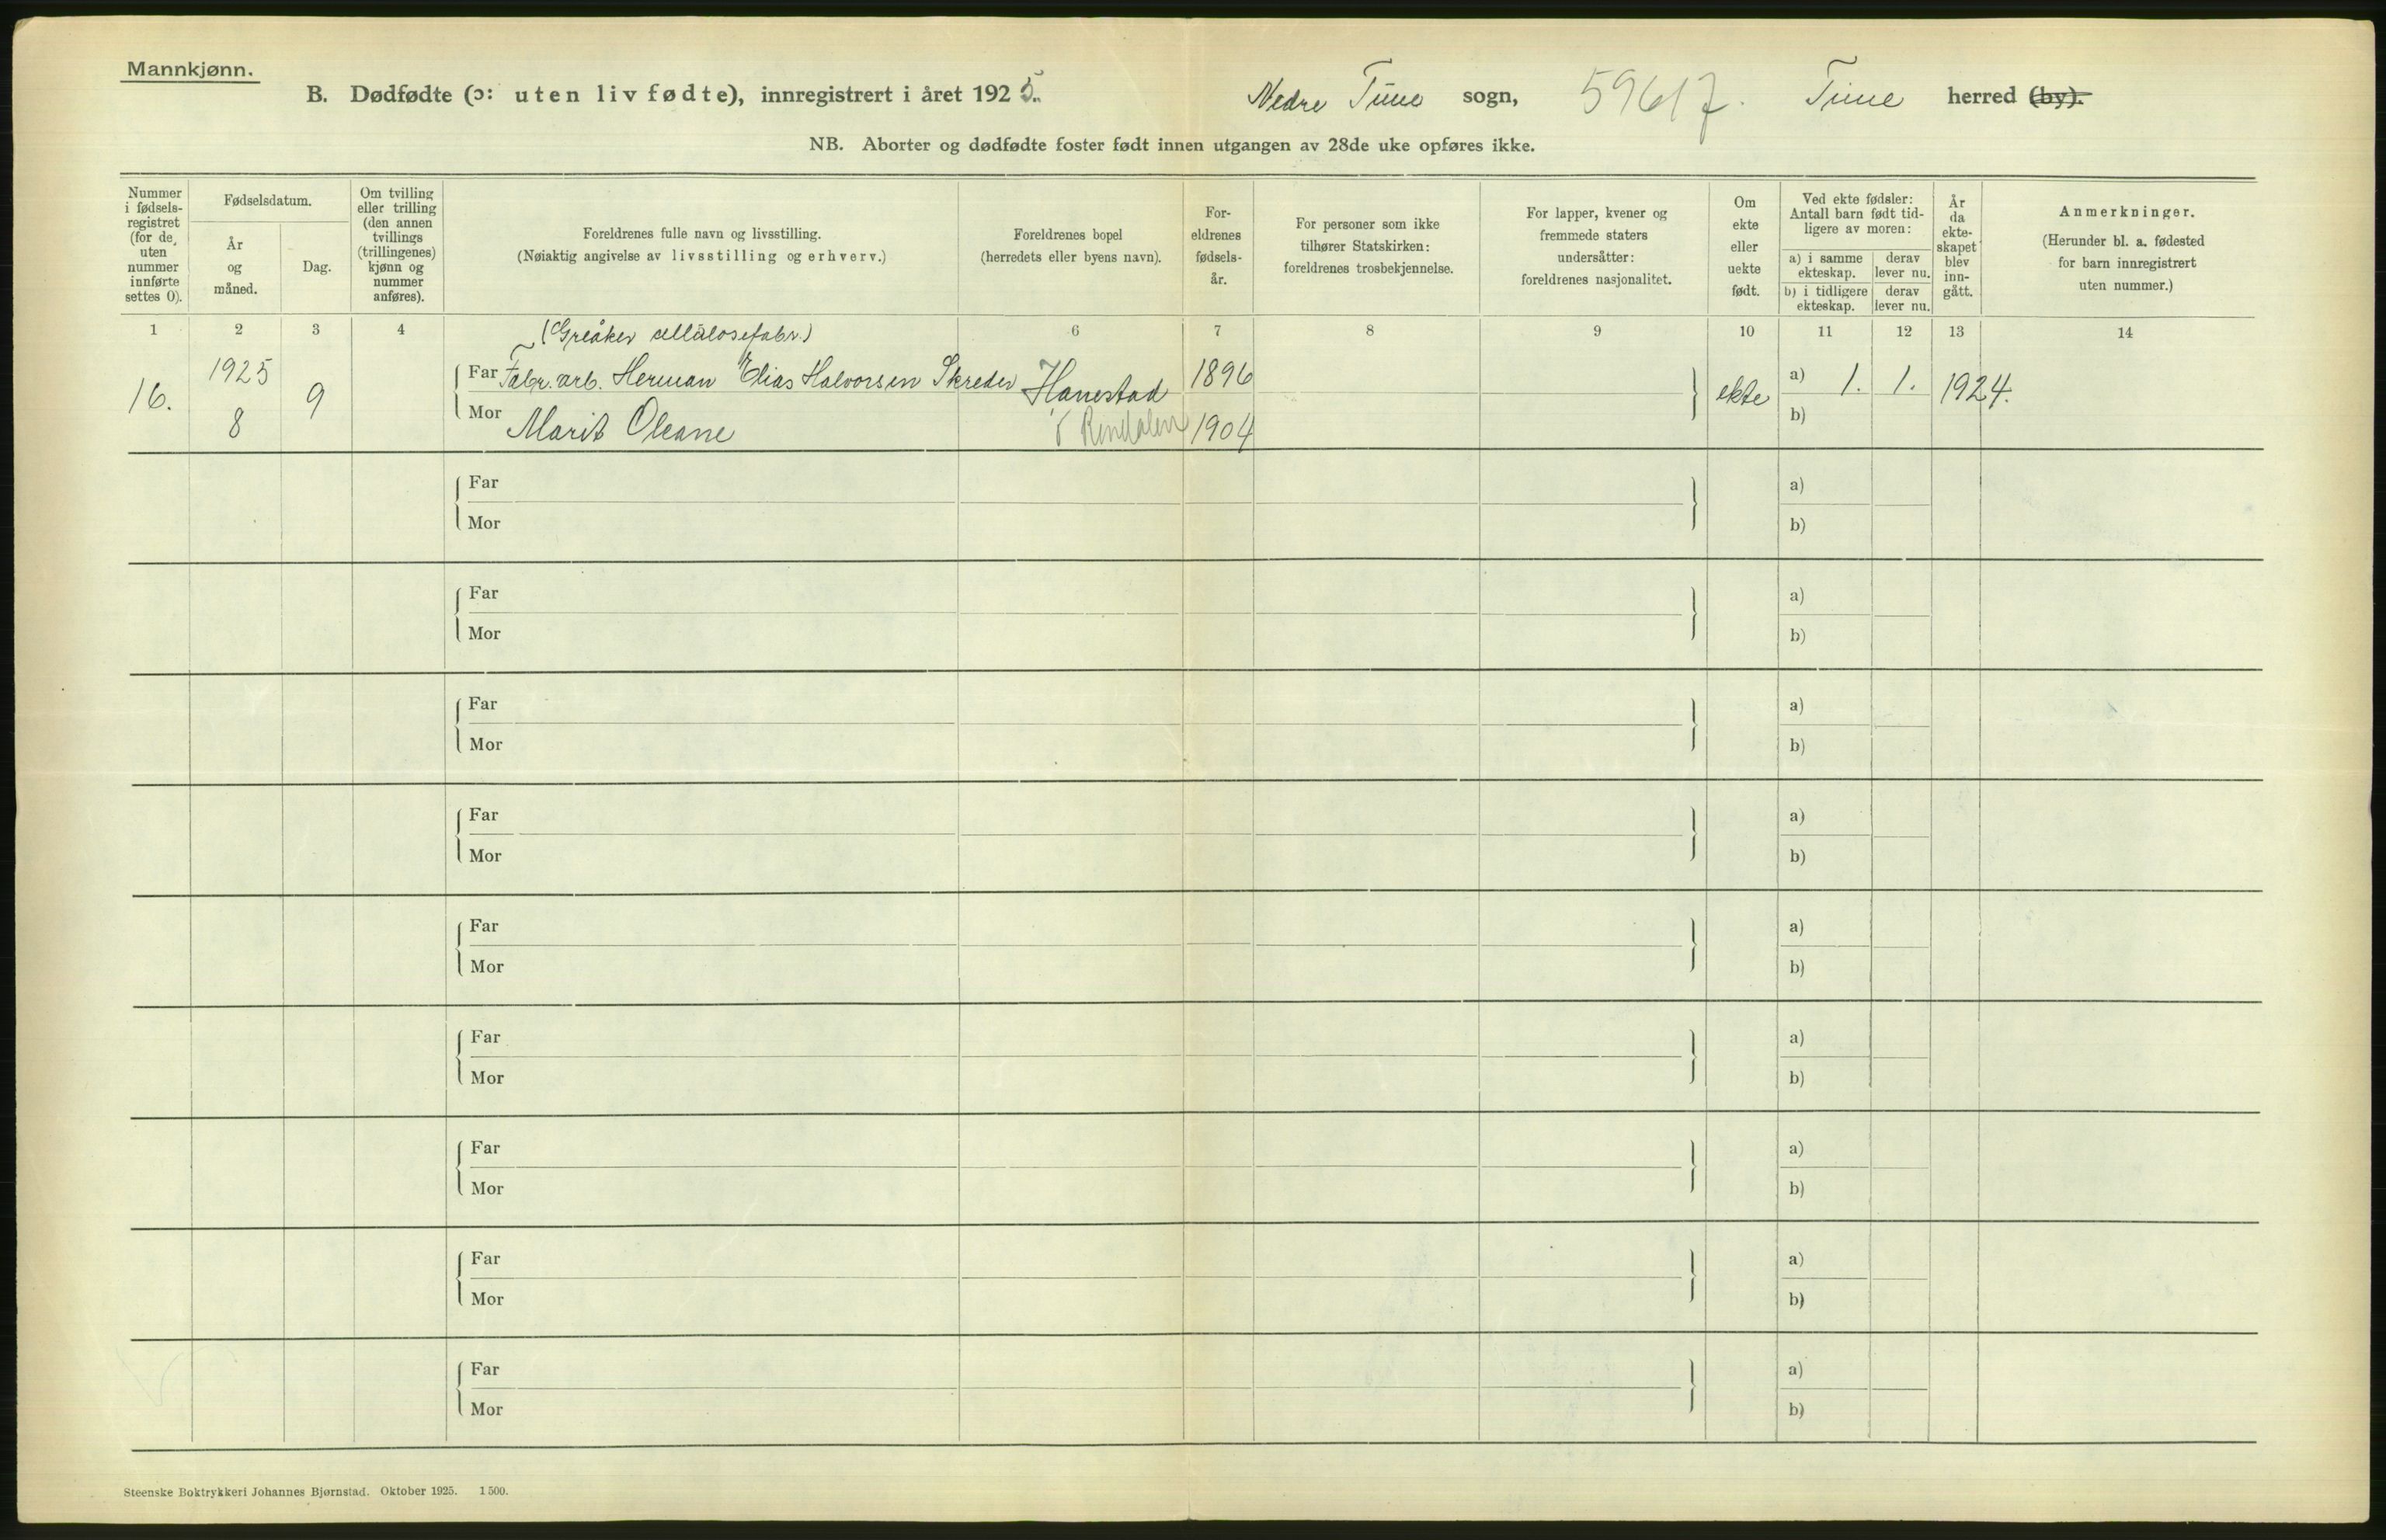 Mannkjønn.
B. Dødfødte (ɔ: uten liv fødte), innregistrert i året 1925. Nedre Tune sogn, 59617. Tune herred (by).
NB. Aborter og dødfødte foster født innen utgangen av 28de uke opføres ikke.
Nummer i fødsels-registret (for de uten nummer innførte settes 0).
Fødselsdatum.
År og måned.
Dag.
Om tvilling eller trilling (den annen tvillings (trillingenes) kjønn og nummer anføres).
Foreldrenes fulle navn og livsstilling.
(Nøiaktig angivelse av livsstilling og erhverv.)
Foreldrenes bopel
(herredets eller byens navn).
For-eldrenes fødsels-år.
For personer som ikke tilhører Statskirken: foreldrenes trosbekjennelse.
For lapper, kvener og fremmede staters undersåtter: foreldrenes nasjonalitet.
Om ekte eller uekte født.
Ved ekte fødsler: Antall barn født tid-ligere av moren:
a) i samme ekteskap.
derav lever nu.
b) i tidligere ekteskap.
derav lever nu.
År da ekte-skapet blev inn-gått.
Anmerkninger.
(Herunder bl. a. fødested for barn innregistrert uten nummer.)
1 2 3 4 6 7 8 9 10 11 12 13 14
(Greåker cellulosefabr.)
16. 1925 8 9
Far Fabr. arb. Herman Elias Halvorsen Skreder Hanestad 1896 ekte a) 1. 1. 1924.
Mor Marit Oleane i Rendalen 1904 b)
Far a)
Mor b)
Far a)
Mor b)
Far a)
Mor b)
Far a)
Mor b)
Far a)
Mor b)
Far a)
Mor b)
Far a)
Mor b)
Far a)
Mor b)
Far a)
Mor b)
Steenske Boktrykkeri Johannes Bjørnstad. Oktober 1925. 1500.